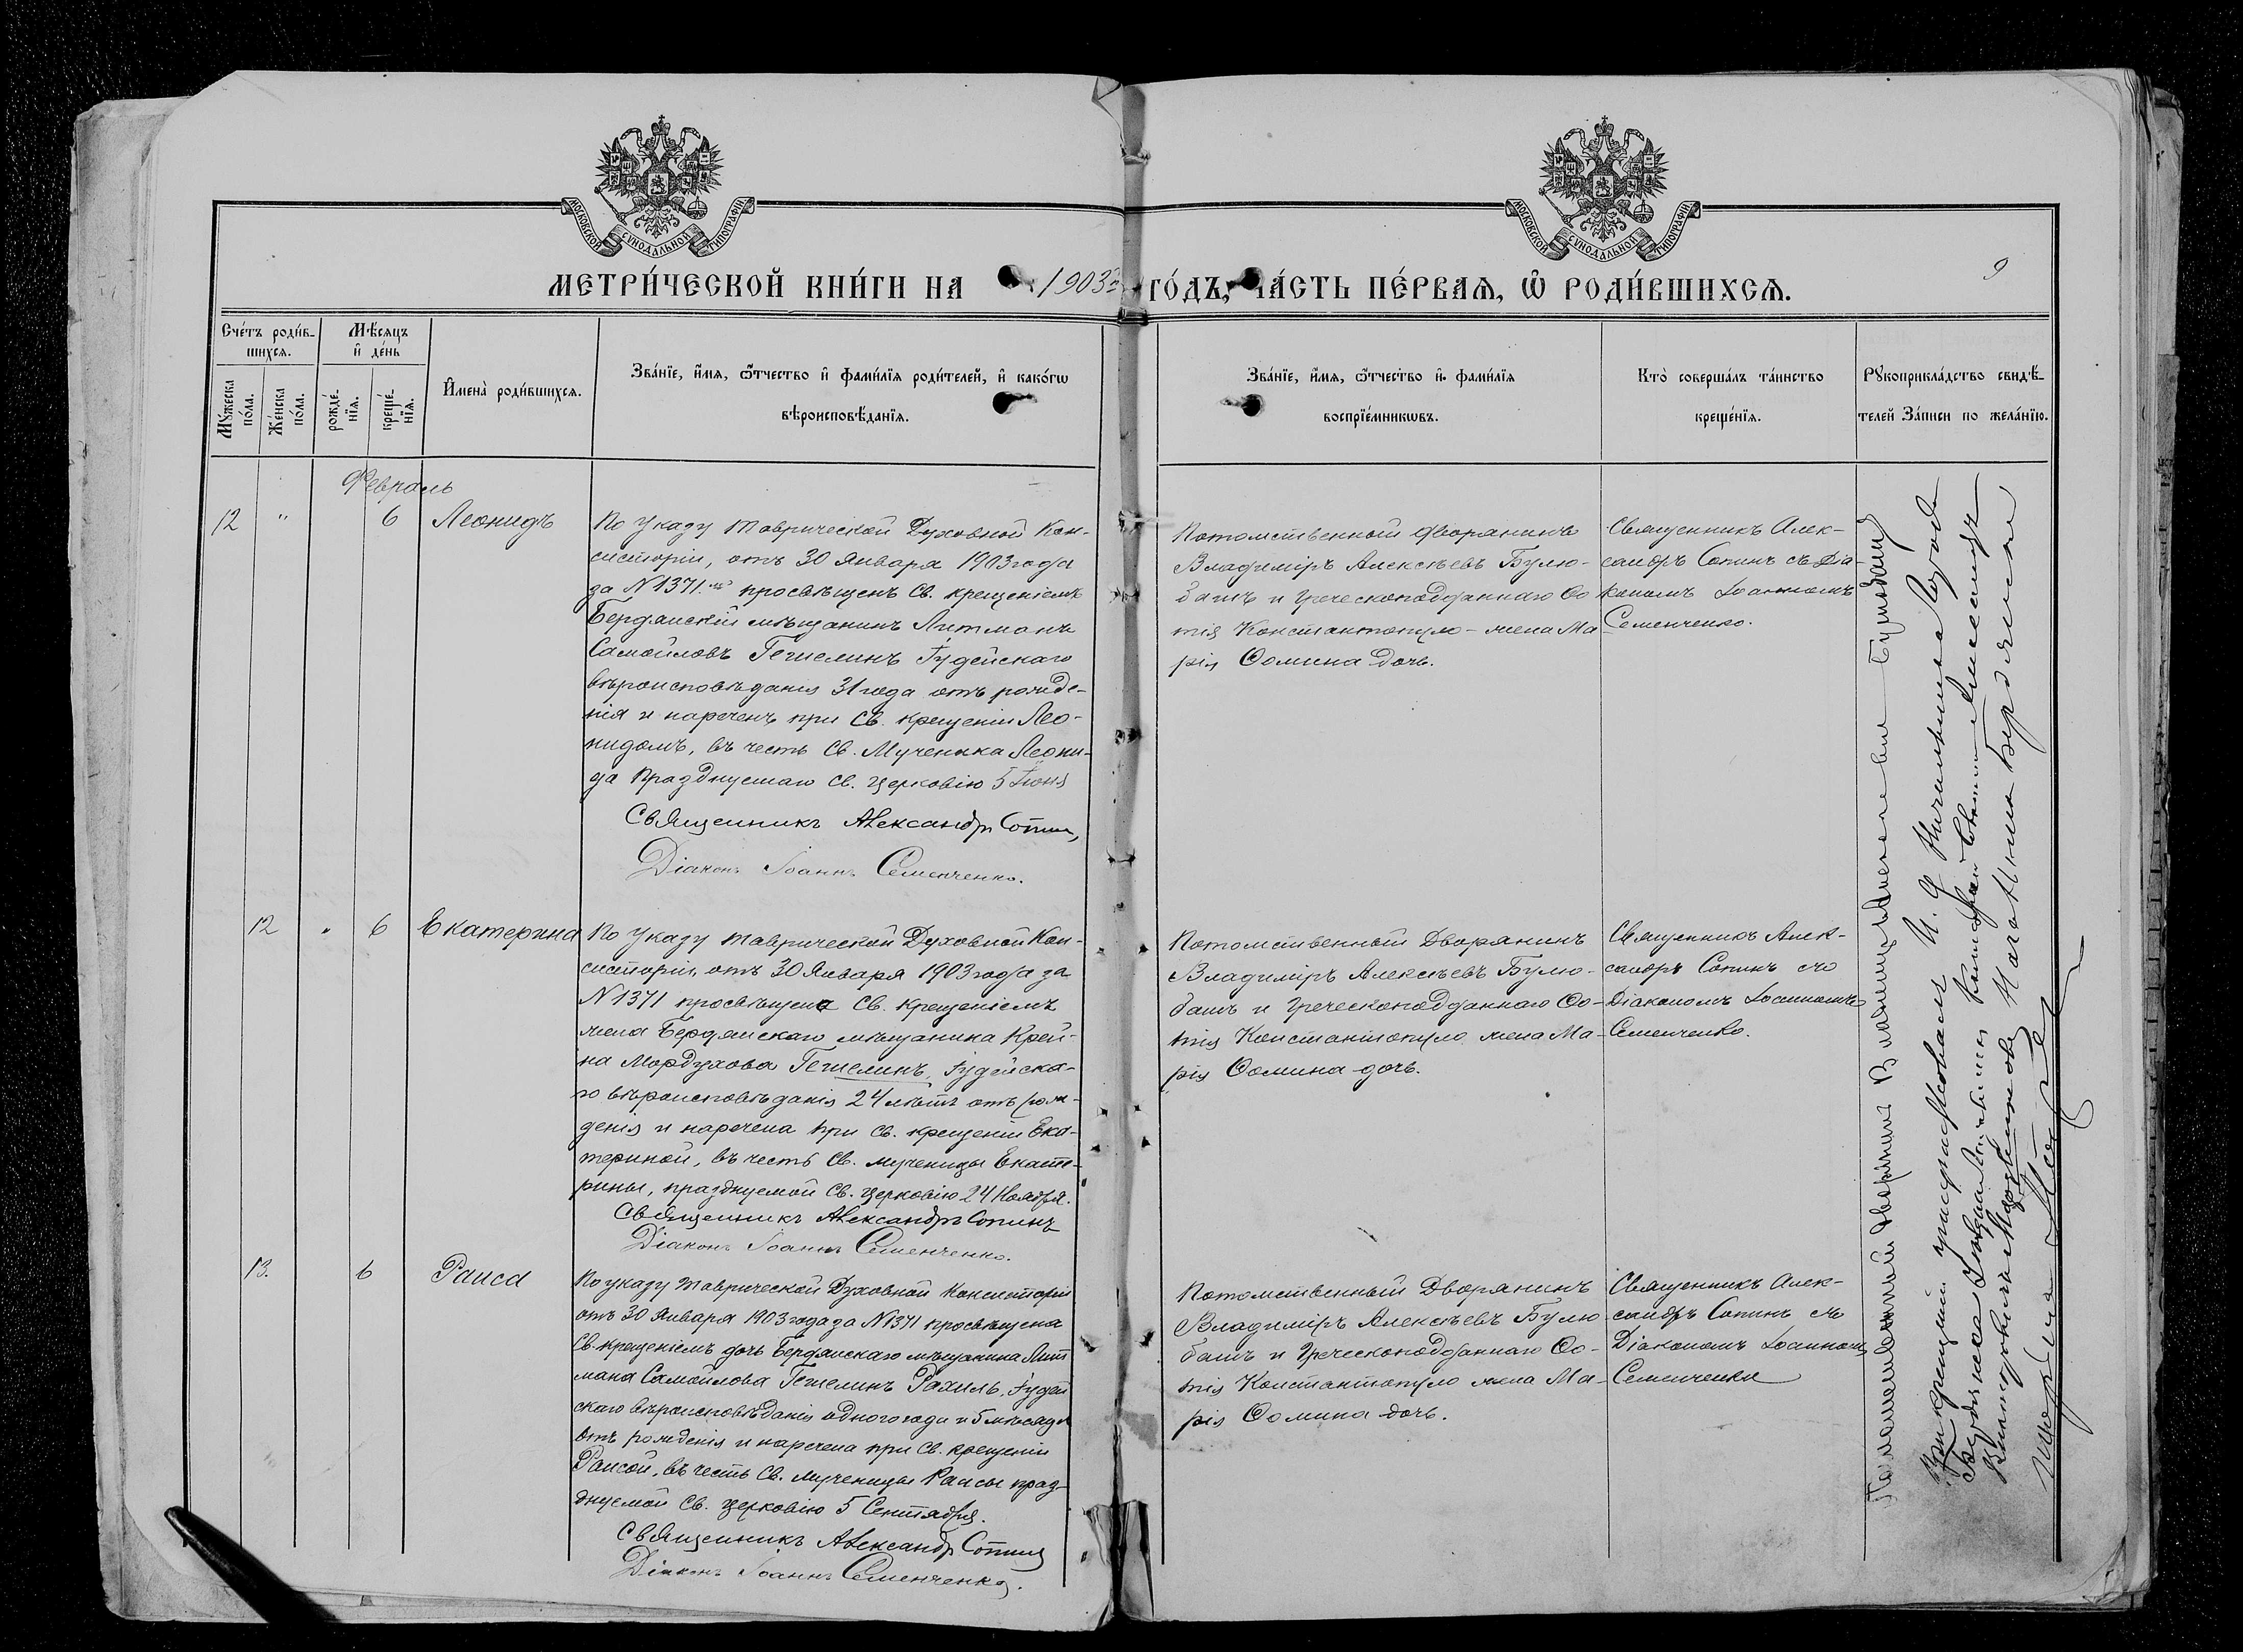 МОСКОВСКОЙ СѴНОДАЛЬНОЙ ТИПОГРАФІИ
МОСКОВСКОЙ СѴНОДАЛЬНОЙ ТИПОГРАФІИ
МЕТРИ́ЧЕСКОЙ КНИ́ГИ НА 1903й ГО́ДЪ, ЧА́СТЬ ПЕ́РВАѦ, Ѽ РОДИ́ВШИХСѦ.
9
Счётъ роди́в-
шихсѧ.
Мꙋжеска по́ла.
Же́нска по́ла.
Мѣ́сѧцъ
и҆ де́нь
рожде́-
нїѧ.
креще́-
нїѧ.
И҆мена̀ роди́вшихсѧ.
Зва́нїе, и҆́мѧ, ѻ҆́тчество и҆ фами́лїѧ роди́телей, и҆ како́гѡ
вѣроисповѣ́данїѧ.
Зва́нїе, и҆́мѧ, ѻ҆́тчество и҆ фами́лїѧ
воспрїе́мникѡвъ.
Кто̀ соверша́лъ та́инство
креще́нїѧ.
Рꙋкоприкла́дство свидѣ́-
телей За́писи по жела́нїю.
Февраль
12 " 6 Леонидъ
По Указу Таврической Духовной Кон-
систоріи, отъ 30 Января 1903 года
за N 1371 просвѣщенъ Св. крещеніемъ
Бердянскій мѣщанинъ Литманъ
Самойловъ Гешелинъ Іудейскаго
вѣроисповѣданія 31 года отъ рожде-
нія и нареченъ при Св. крещеніи Лео-
нидомъ, въ честь Св. Мученика Леони-
да празднуемаго Св. церковію 5 Іюня
Священникъ Александръ Сопинъ,
Діаконъ Іоаннъ Семенченко.
Потомственный дворянинъ
Владиміръ Алексѣевъ Булю-
башъ и Греческоподданнаго Фо
тія Константопуло - жена Ма-
рія Фомина дочь.
Священникъ Алек-
сандръ Сопинъ съ Діа-
кономъ Іоанномъ
Семенченко.
12 " 6 Екатерина
По Указу Таврической Духовной Кон-
систоріи, отъ 30 Января 1903 года за
N 1371 просвѣщена Св. Крещеніемъ
жена Бердянскаго мѣщанина Крей-
на Мордухова Гешелинъ, Іудейска-
го вѣроисповѣданія 24 лѣтъ отъ рож-
денія и наречена при Св. крещеніи Ека-
териной, въ честь Св. мученицы Екате-
рины, празднуемой Св. церковію 24 Ноября.
Священникъ Александръ Сопинъ
Діаконъ Іоаннъ Семенченко.
Потомственный Дворянинъ
Владиміръ Алексѣевъ Булю-
башъ и Греческоподданнаго Фо-
тія Константопуло жена Ма-
рія Фомина дочь.
Священникъ Алек-
сандръ Сопинъ съ
Діакономъ Іоанномъ
Семенченко.
13. 6 Раиса
По указу Таврической Духовной Консисторіи
отъ 30 Января 1903 года за N 1371 просвѣщена
Св. крещеніемъ дочь Бердянскаго мѣщанина Лит
мана Самойлова Гешелинъ Рахиль, Іудей
скаго вѣроисповѣданія одного года и 5 мѣсяцевъ
отъ рожденія и наречена при Св. крещеніи
Раисой, въ честь Св. мученицы Раисы праз-
днуемой Св. церковію 5 Сентября.
Священникъ Александръ Сопинъ
Діаконъ Іоаннъ Семенченко.
Потомственный Дворянинъ
Владиміръ Алексѣевъ Булю
башъ и Греческоподданнаго Фо-
тія Константопуло жена Ма-
рія Фомина дочь.
Священникъ Алек-
сандръ Сопинъ съ
Діакономъ Іоанномъ
Семенченко
Потомственный дворянинъ Владиміръ Алексѣевъ Булюбашъ
При крещеніи присутствовалъ